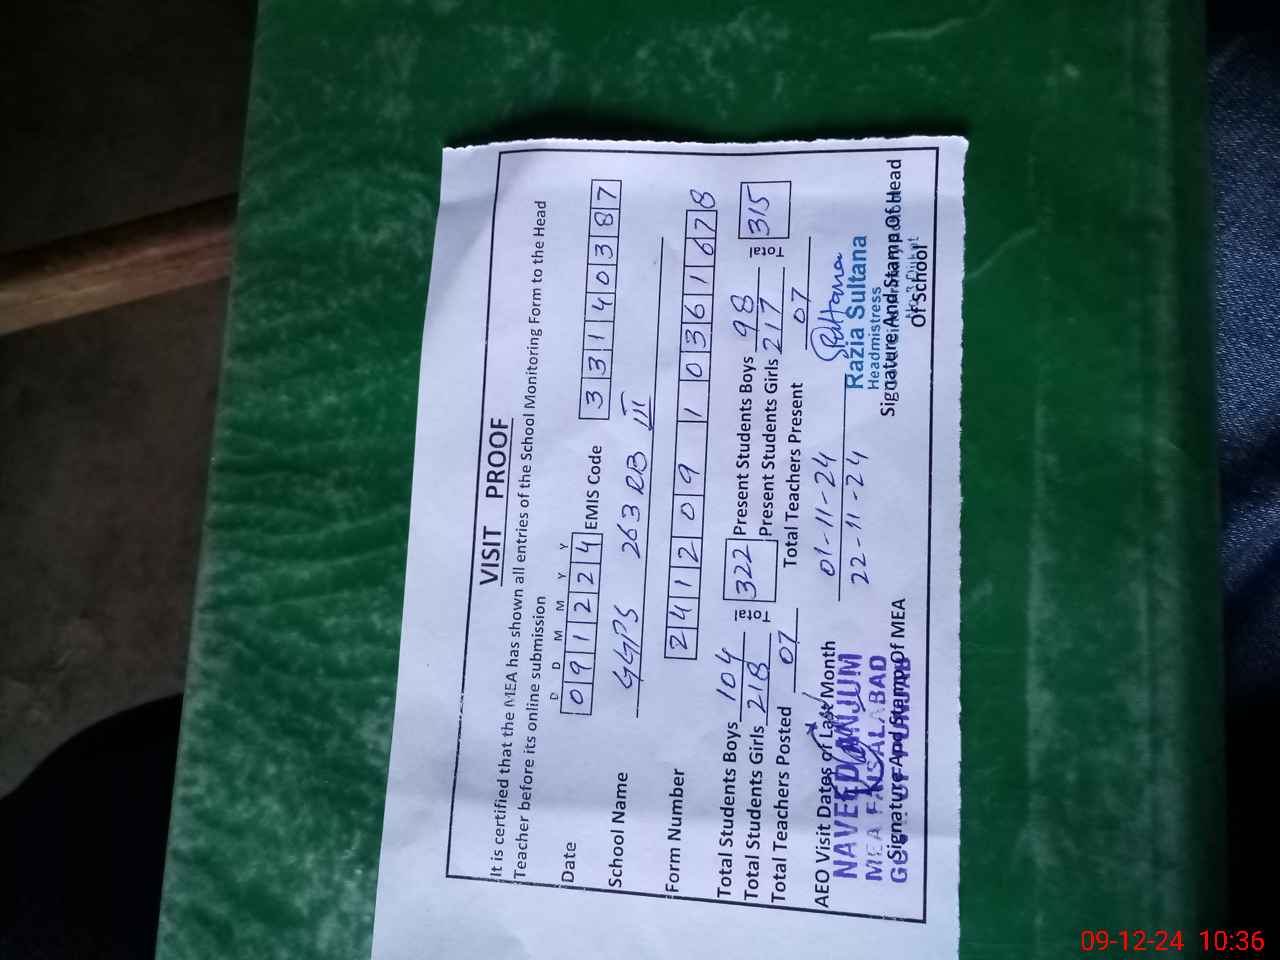 VISIT PROOF
It is certified that the MEA has shown all entries of the School Monitoring Form to the Head
Teacher before its online submission
D D M M Y Y
Date 0 9 1 2 2 4 EMIS Code 3 3 1 4 0 3 8 7
School Name GGPS 263 RB III
Form Number 2 4 1 2 0 9 1 0 3 6 1 6 7 8
Total Students Boys 104 Total 322 Present Students Boys 98 Total 315
Total Students Girls 218 Present Students Girls 217
Total Teachers Posted 07 Total Teachers Present 07
AEO Visit Dates of Last Month 01-11-24
22-11-24
Sultana
NAVEED ANJUM
MEA FAISALABAD
Razia Sultana
Headmistress
Signature And Stamp Of MEA
Signature And Stamp Of Head
Of School
09-12-24 10:36